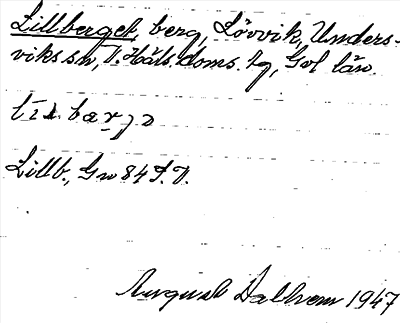 Lillberget, berg, Lövvik, Unders-
viks sn, V. Häls. doms. tg, Gvl län.
Lillb., Gw 84 S.V.
August Dalhem 1947